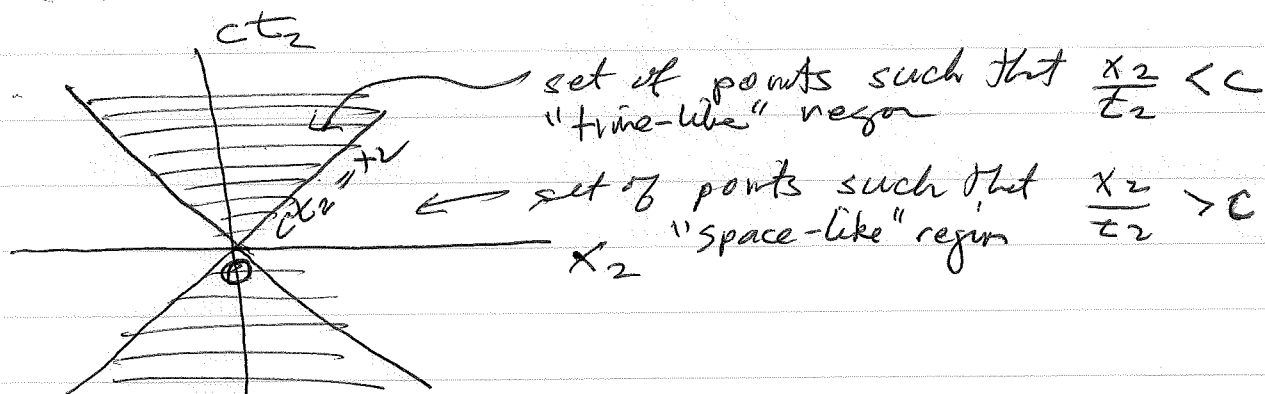 ct₂
set of points such that x₂/t₂ < c
"time-like" region
ct₂ = x₂
set of points such that x₂/t₂ > c
"space-like" region
x₂